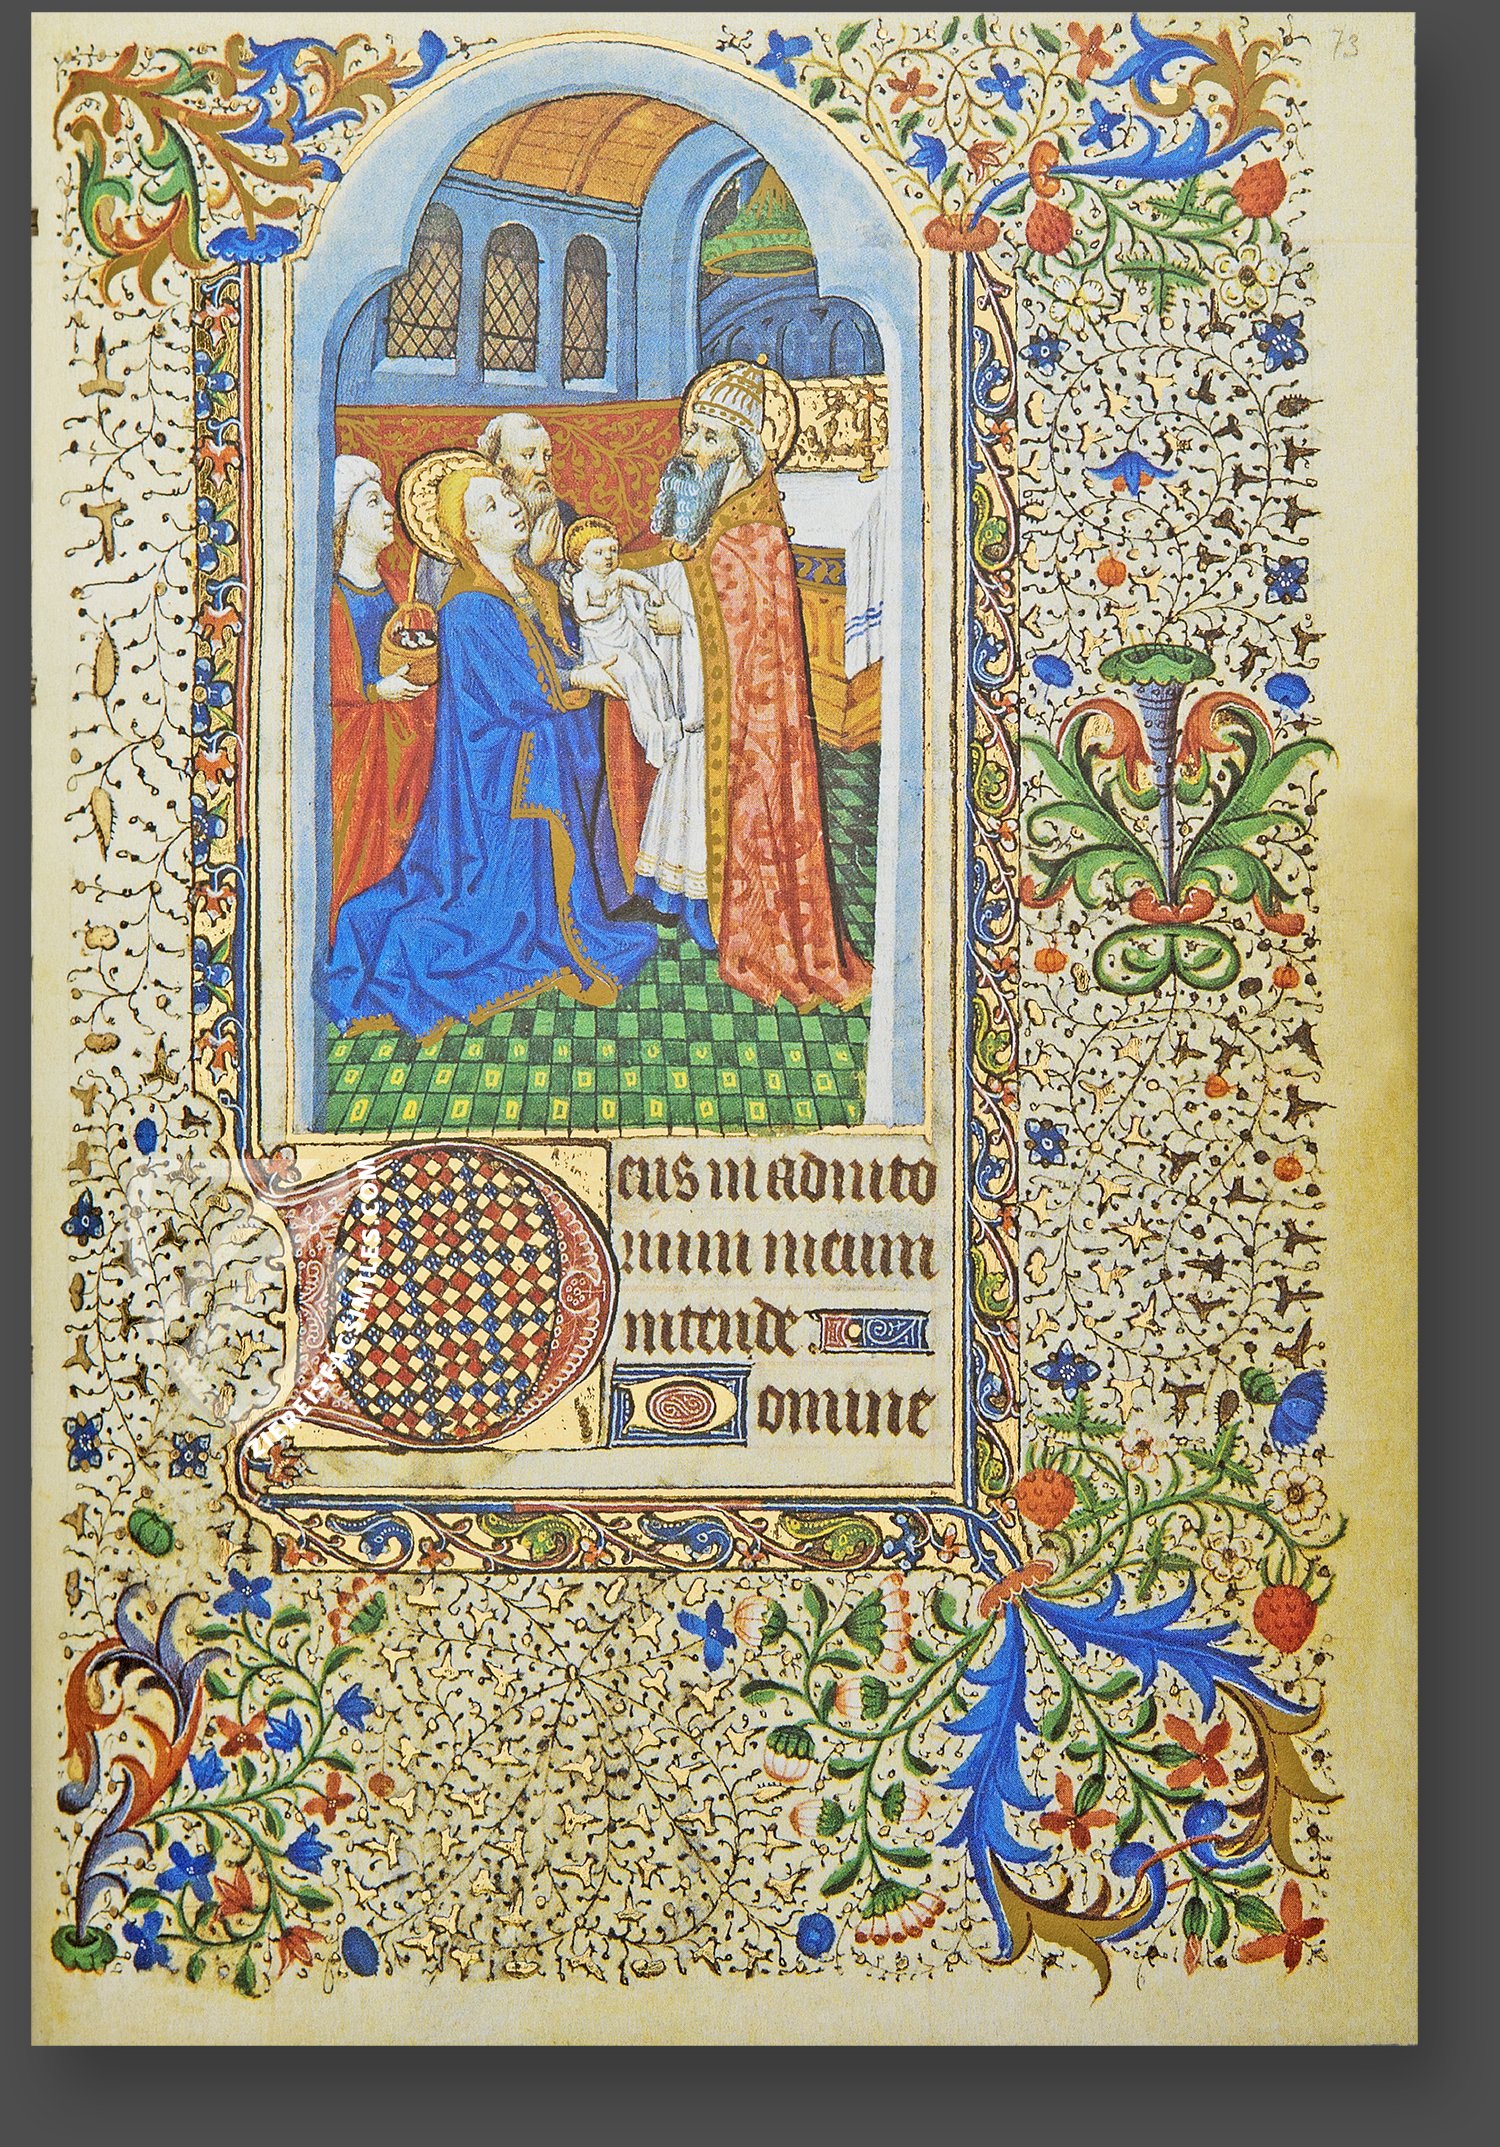 73
Deus in adiuto
rium meum
intende
Domine
ZIEREISFACSIMILES.COM